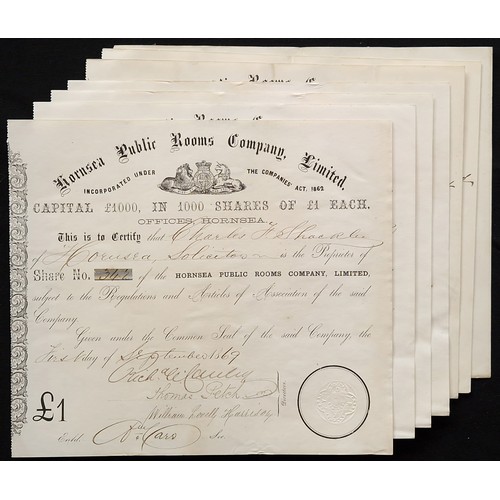 Hornsea Public Rooms Company, Limited.
INCORPORATED UNDER THE COMPANIES' ACT, 1862.
CAPITAL £1000, IN 1000 SHARES OF £1 EACH.
OFFICES, HORNSEA.
This is to Certify that Charles
of Hornsea, Solicitor is the Proprietor of
Share No. of the HORNSEA PUBLIC ROOMS COMPANY, LIMITED,
subject to the Regulations and Articles of Association of the said
Company.
Given under the Common Seal of the said Company, the
First day of September 1869
Thomas Petch
William Lovell Harrison
Directors.
£1
Entd. Sec.